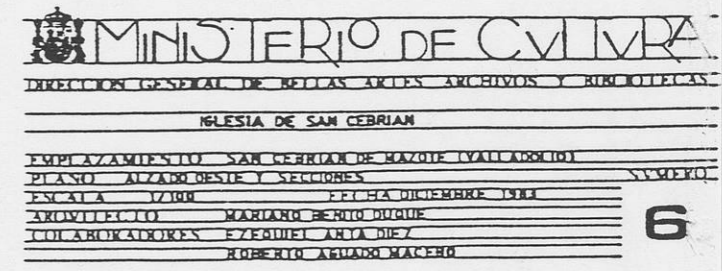 MINISTERIO DE CVLTVRA
DIRECCION GENERAL DE BELLAS ARTES ARCHIVOS Y BIBLIOTECAS
IGLESIA DE SAN CEBRIAN
EMPLAZAMIENTO SAN CEBRIAN DE MAZOTE (VALLADOLID)
PLANO ALZADO OESTE Y SECCIONES NUMERO
ESCALA 1/100 FECHA DICIEMBRE 1983 6
ARQVITECTO MARIANO BENITO DUQUE
COLABORADORES EZEQUIEL ANTA DIEZ
ROBERTO AGUADO MACEHO